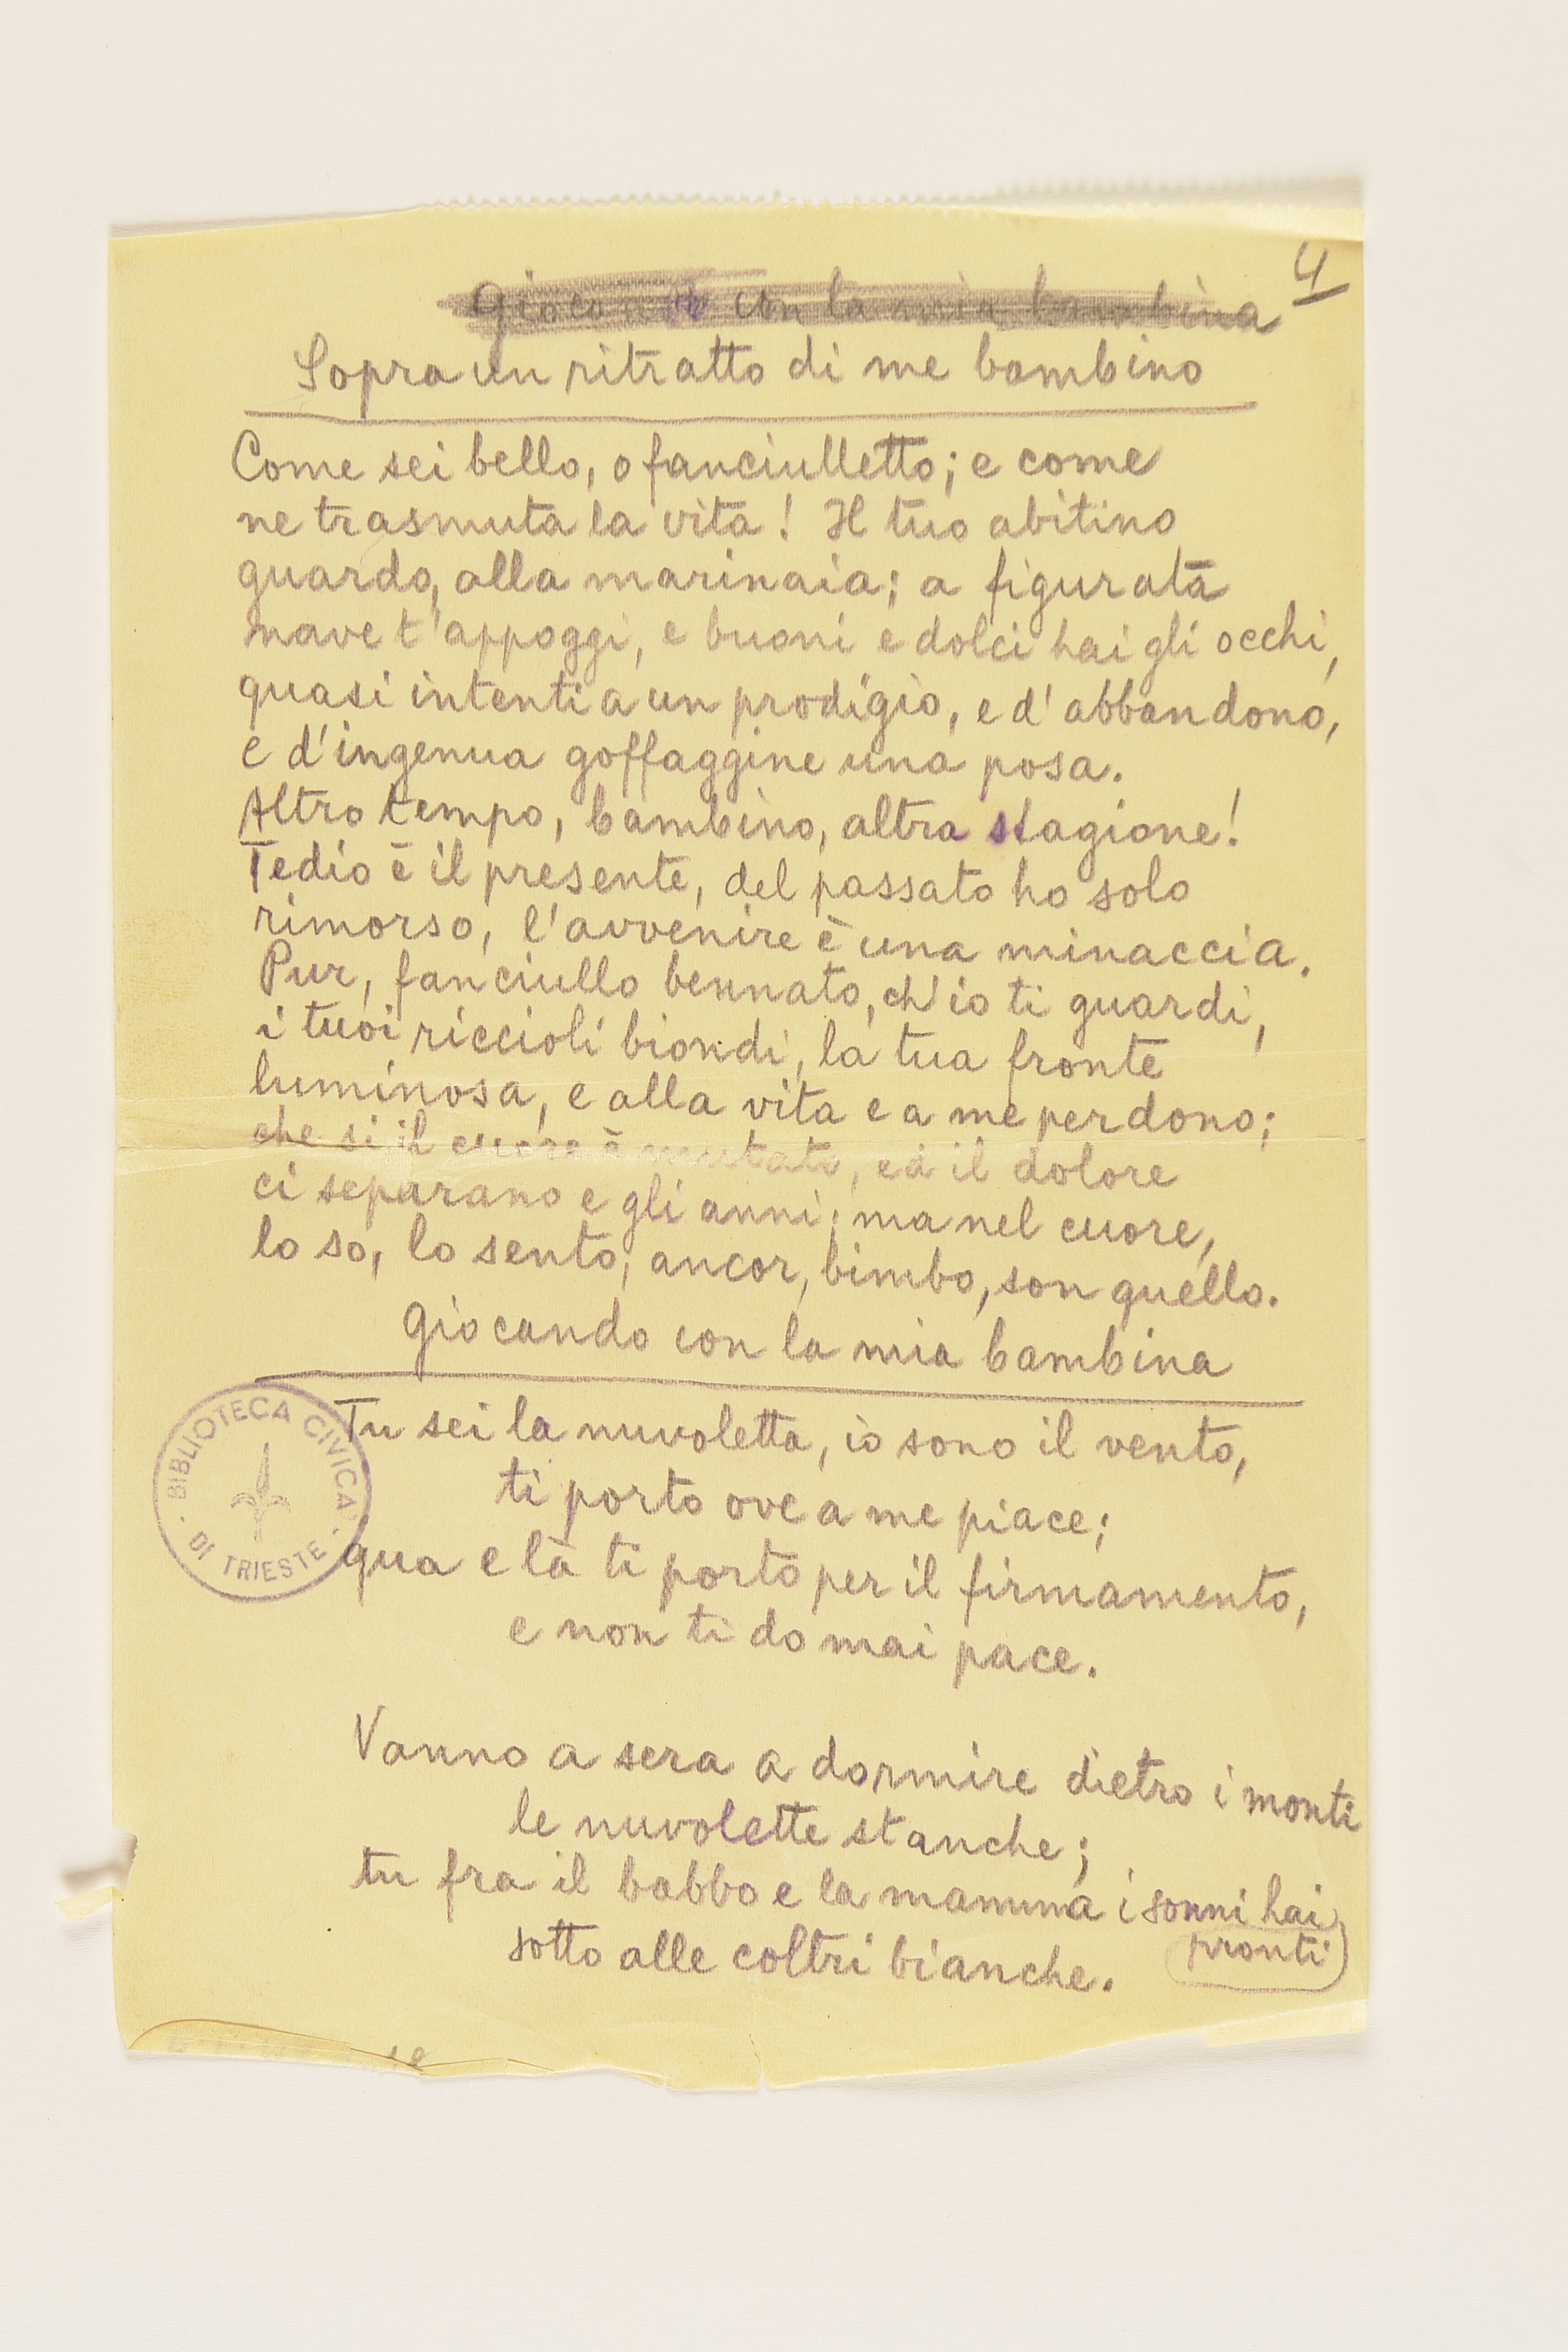 4
Giocando con la mia bambina
Sopra un ritratto di me bambino
Come sei bello, o fanciulletto; e come
ne trasmuta la vita! Il tuo abitino
guardo, alla marinaia; a figurata
nave t'appoggi, e buoni e dolci hai gli occhi,
quasi intenti a un prodigio, e d'abbandono,
e d'ingenua goffaggine una posa.
Altro tempo, bambino, altra stagione!
Tedio è il presente, del passato ho solo
rimorso, l'avvenire è una minaccia.
Pur, fanciullo bennato, ch'io ti guardi,
i tuoi riccioli biondi, la tua fronte
luminosa, e alla vita e a me perdono;
che si il cuore è mutato, ed il dolore
ci separano e gli anni; ma nel cuore,
lo so, lo sento, ancor, bimbo, son quello.
Giocando con la mia bambina
Tu sei la nuvoletta, io sono il vento,
ti porto ove a me piace;
qua e là ti porto per il firmamento,
e non ti do mai pace.
Vanno a sera a dormire dietro i monti
le nuvolette stanche;
tu fra il babbo e la mamma i sonni hai
pronti
sotto alle coltri bianche.
BIBLIOTECA CIVICA
DI TRIESTE